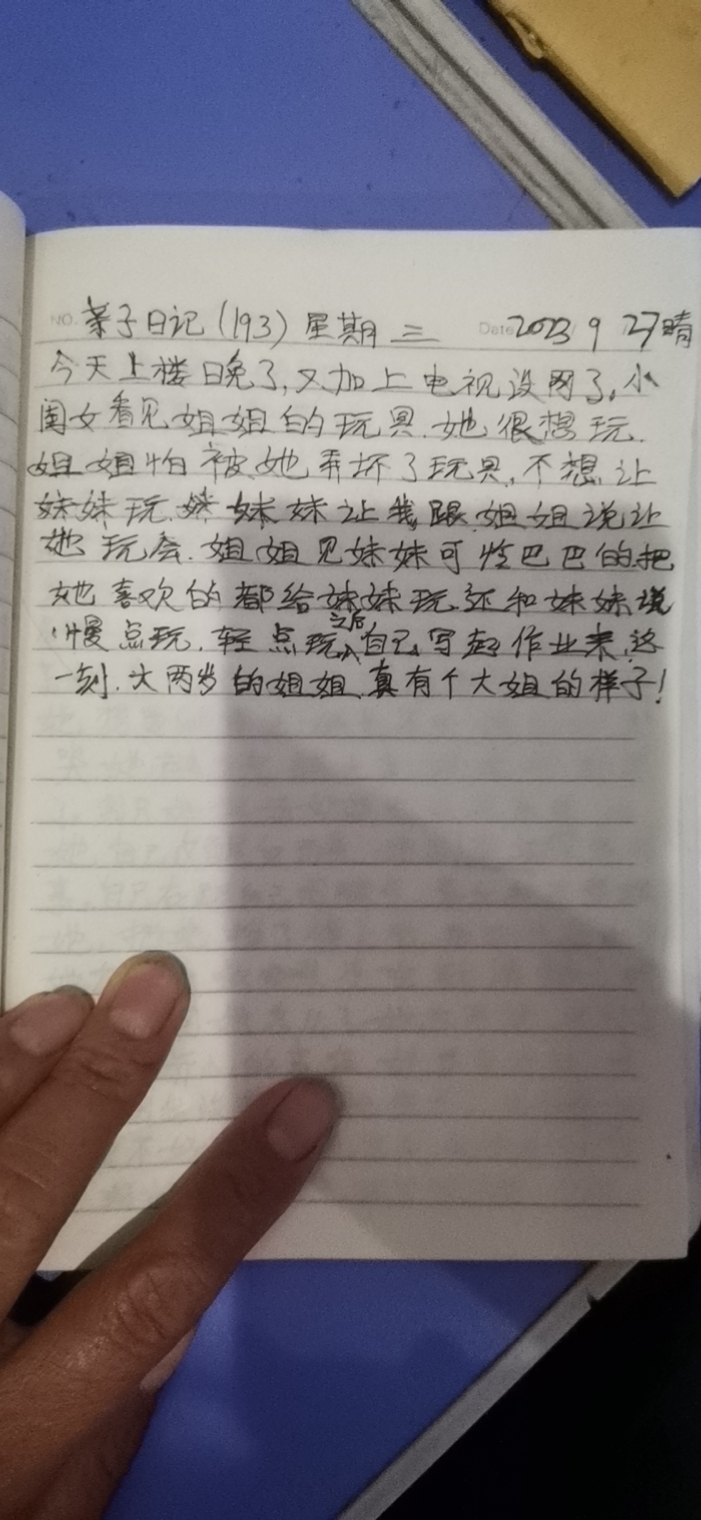 NO. 亲子日记（193）星期三 Date 2023 9 27晴
今天上楼晚了,又加上电视没网了,小
闺女看见姐姐的玩具.她很想玩.
姐姐怕被她弄坏了玩具,不想让
妹妹玩.妹妹让我跟姐姐说让
她玩会.姐姐见妹妹可怜巴巴的把
她喜欢的都给妹妹玩.还和妹妹说
慢点玩.轻点玩,之后自己写起作业来.这
一刻.大两岁的姐姐.真有个大姐的样子!